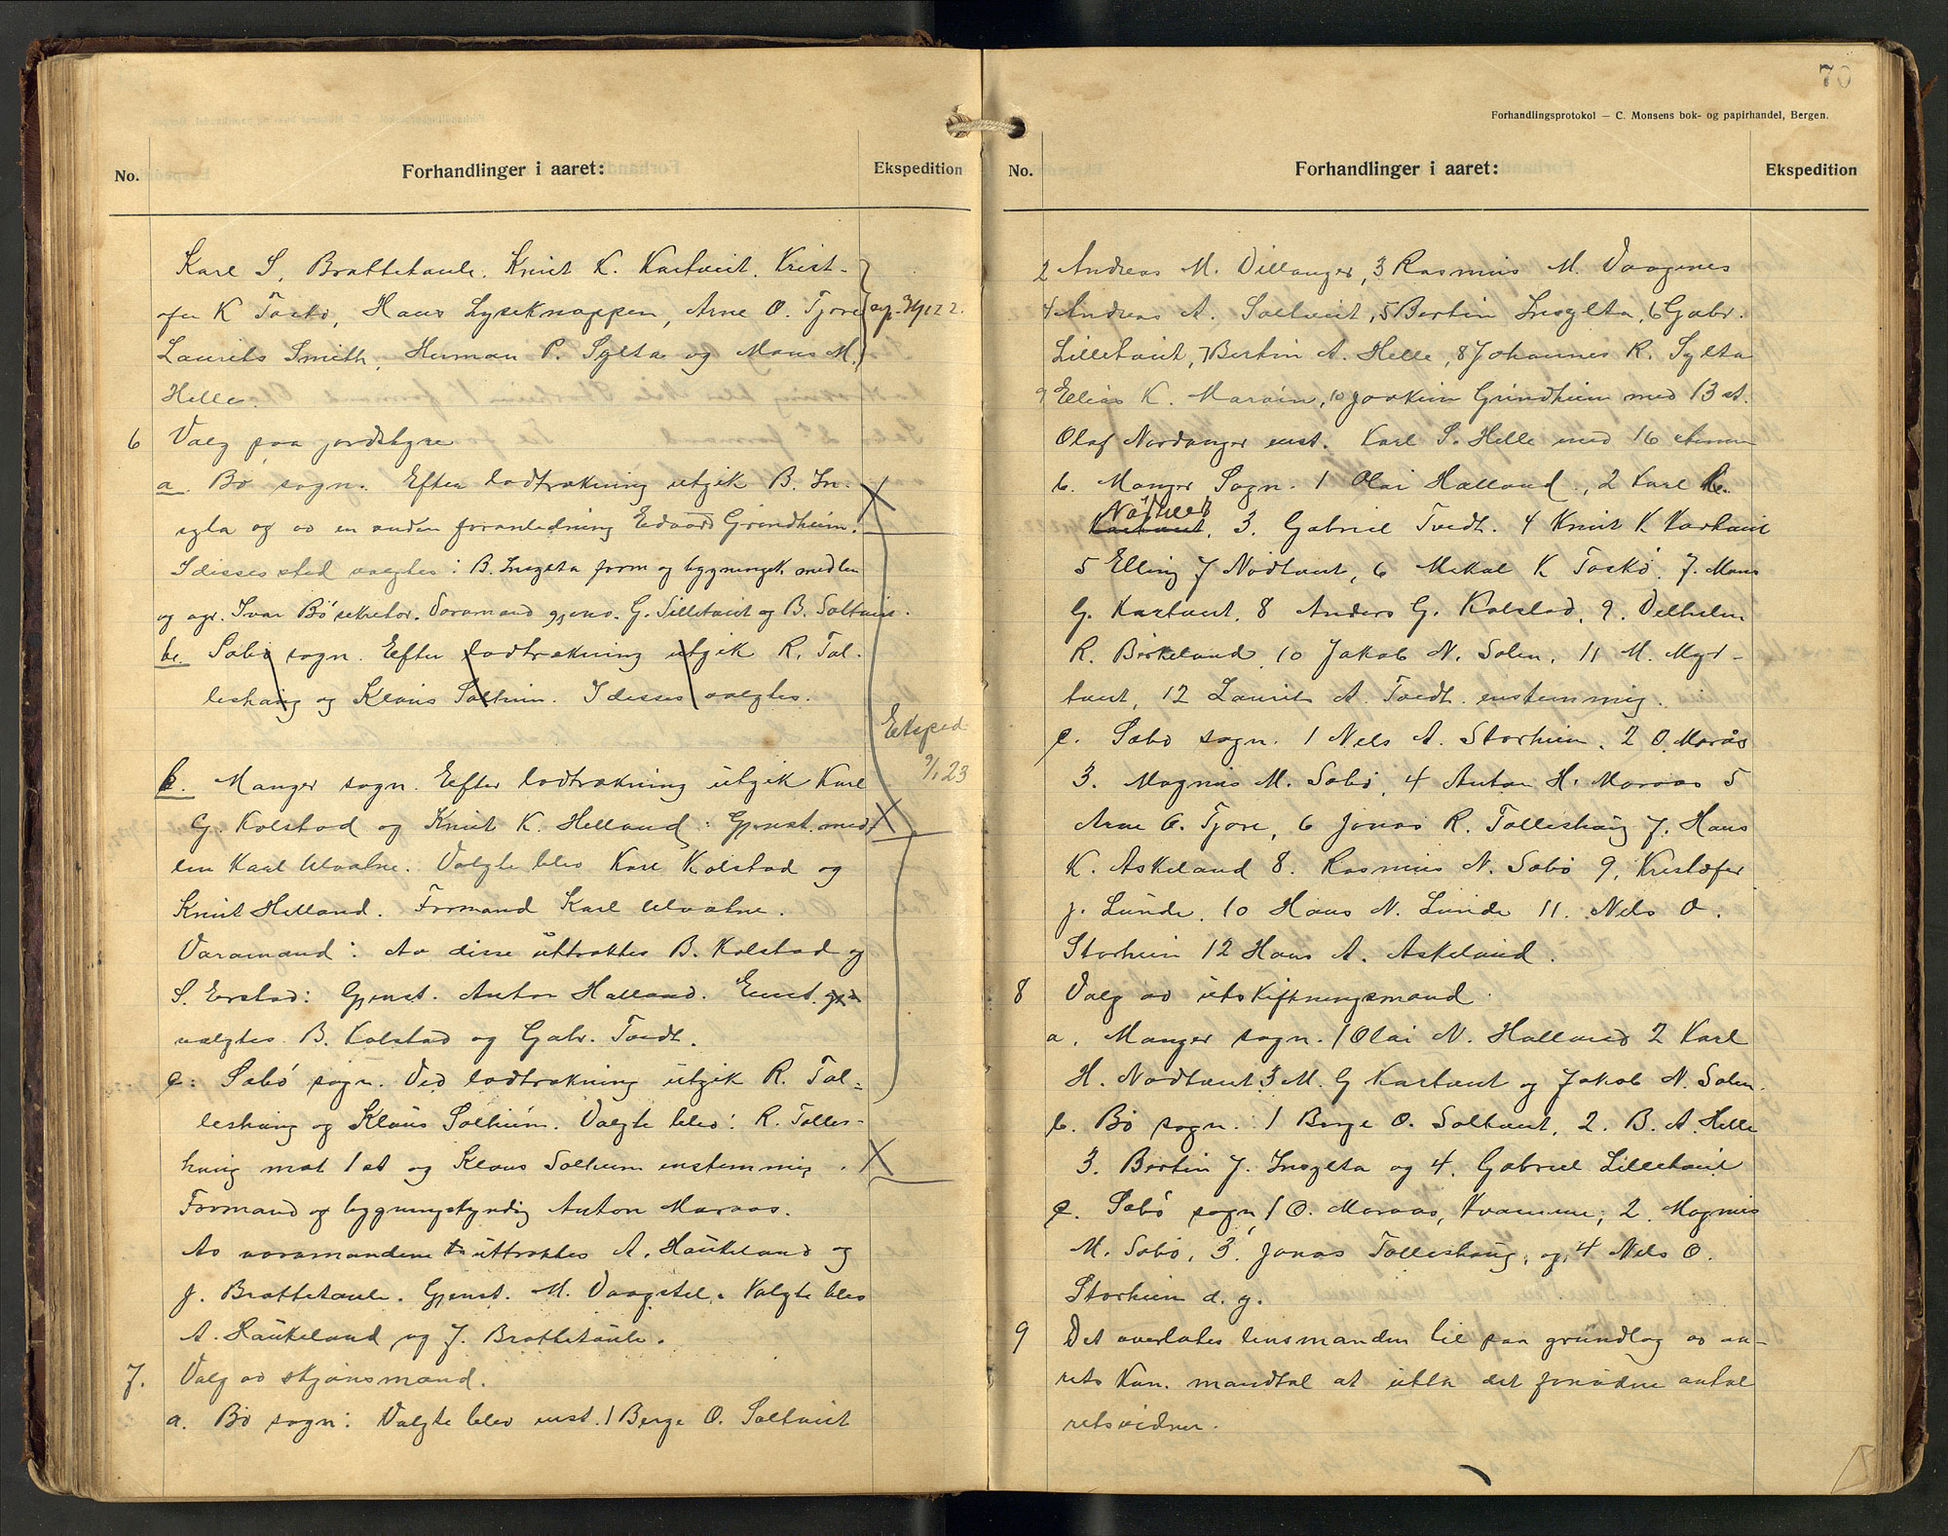 No.
Forhandlinger i aaret:
Ekspedition
Karl S. Brattetaule. Knut K. Kartveit. Krist-
ofer K Toskø, Hans Lyseknappen, Arne O. Tjore
Laurits Smith, Herman P. Sylta og Mons M.
Helle.
6 Valg paa jordstyre
a. Bø sogn. Efter lodtrækning utgik B. In-
sylta og av en anden foranledning Edvard Grindheim.
I disses sted valgtes: B. Insylta form og bygningsk. medlem
og agr. Ivar Bø sekretær. Varamænd gjenv. G. Lilletveit og B. Soltveit.
b. Sæbø sogn. Efter lodtrækning utgik R. Tol-
leshaug og Klaus Solheim. I disses valgtes.
Eksped
9/1 23
b. Manger sogn. Efter lodtrækning utgik Karl
G. Kolstad og Knut K. Helland: Gjenst. med
lem Karl Ulvatne. Valgte blev Karl Kolstad og
Knut Helland. Formand Karl Ulvatne.
Varamænd: Av disse uttraktes B. Kolstad og
S. Evstad: Gjenst. Anton Halland. Enst.
valgtes B. Kolstad og Gabr. Tvedt.
c: Sæbø sogn. Ved lodtrækning utgik R. Tol=
leshaug og Klaus Solheim. Valgte blev: R. Tolles-
haug mot 1 st og Klaus Solheim enstemmig.
Formand og bygningskyndig Anton Maraas.
Av varamændene uttraktes A. Haukeland og
J. Brattetaule. Gjenst. M. Vaagstel. Valgte blev
A. Haukeland og J. Brattetaule.
7. Valg av skjønsmænd.
a. Bø sogn: Valgte blev enst. 1 Berge O. Soltveit
70
Forhandlingsprotokol — C. Monsens bok- og papirhandel, Bergen.
No.
Forhandlinger i aaret:
Ekspedition
2 Andreas M. Dillanger, 3 Rasmus M. Vaagenes
4 Andreas A. Soltveit, 5 Bertin Insylta, 6 Gabr.
Lilletveit, 7 Bertin A. Helle, 8 Johannes R. Sylta
9 Elias K. Marøin, 10 Joakim Grindheim med 13 st.
Olaf Nordanger enst. Karl S. Helle med 16 stemmer
b. Manger Sogn. 1 Olai Halland, 2 Karl H.
Nøttveit
Kartveit, 3. Gabriel Tvedt. 4 Knut K Kartveit
5 Elling J Nødtveit, 6 Mikal K Toskø. 7. Mons
G. Kartveit. 8 Anders G. Kolstad, 9. Vilhelm
R. Birkeland, 10 Jakob N. Solen, 11 M. Myr-
tveit, 12 Laurits A. Tvedt. enstemmig.
c. Sæbø sogn. 1 Nils A. Storheim, 2 O. Marås
3. Magnus M. Sæbø, 4 Anton H. Maraas 5
Arne O. Tjore, 6 Jonas R. Tolleshaug 7. Hans
K. Askeland 8. Rasmus N. Sæbø 9. Kristofer
J. Lunde. 10 Hans N. Lunde 11. Nils O.
Storheim 12 Hans A. Askeland.
8 Valg av utskiftningsmænd.
a. Manger sogn. 1 Olai N. Halland 2 Karl
H. Nødtveit 3 M. G Kartveit og Jakob N. Solen.
b. Bø sogn. 1 Berge O. Soltveit, 2. B. A. Helle
3. Bertin J. Insylta og 4. Gabriel Lilletveit
c. Sæbø sogn, 1 O. Maraas, Kvamme; 2. Magnus
M. Sæbø, 3. Jonas Tolleshaug, og 4 Nils O.
Storheim d. y.
9 Det overlates lensmanden til paa grundlag av aa-
rets kom. mandtal at utta det fornødne antal
retsvidner.